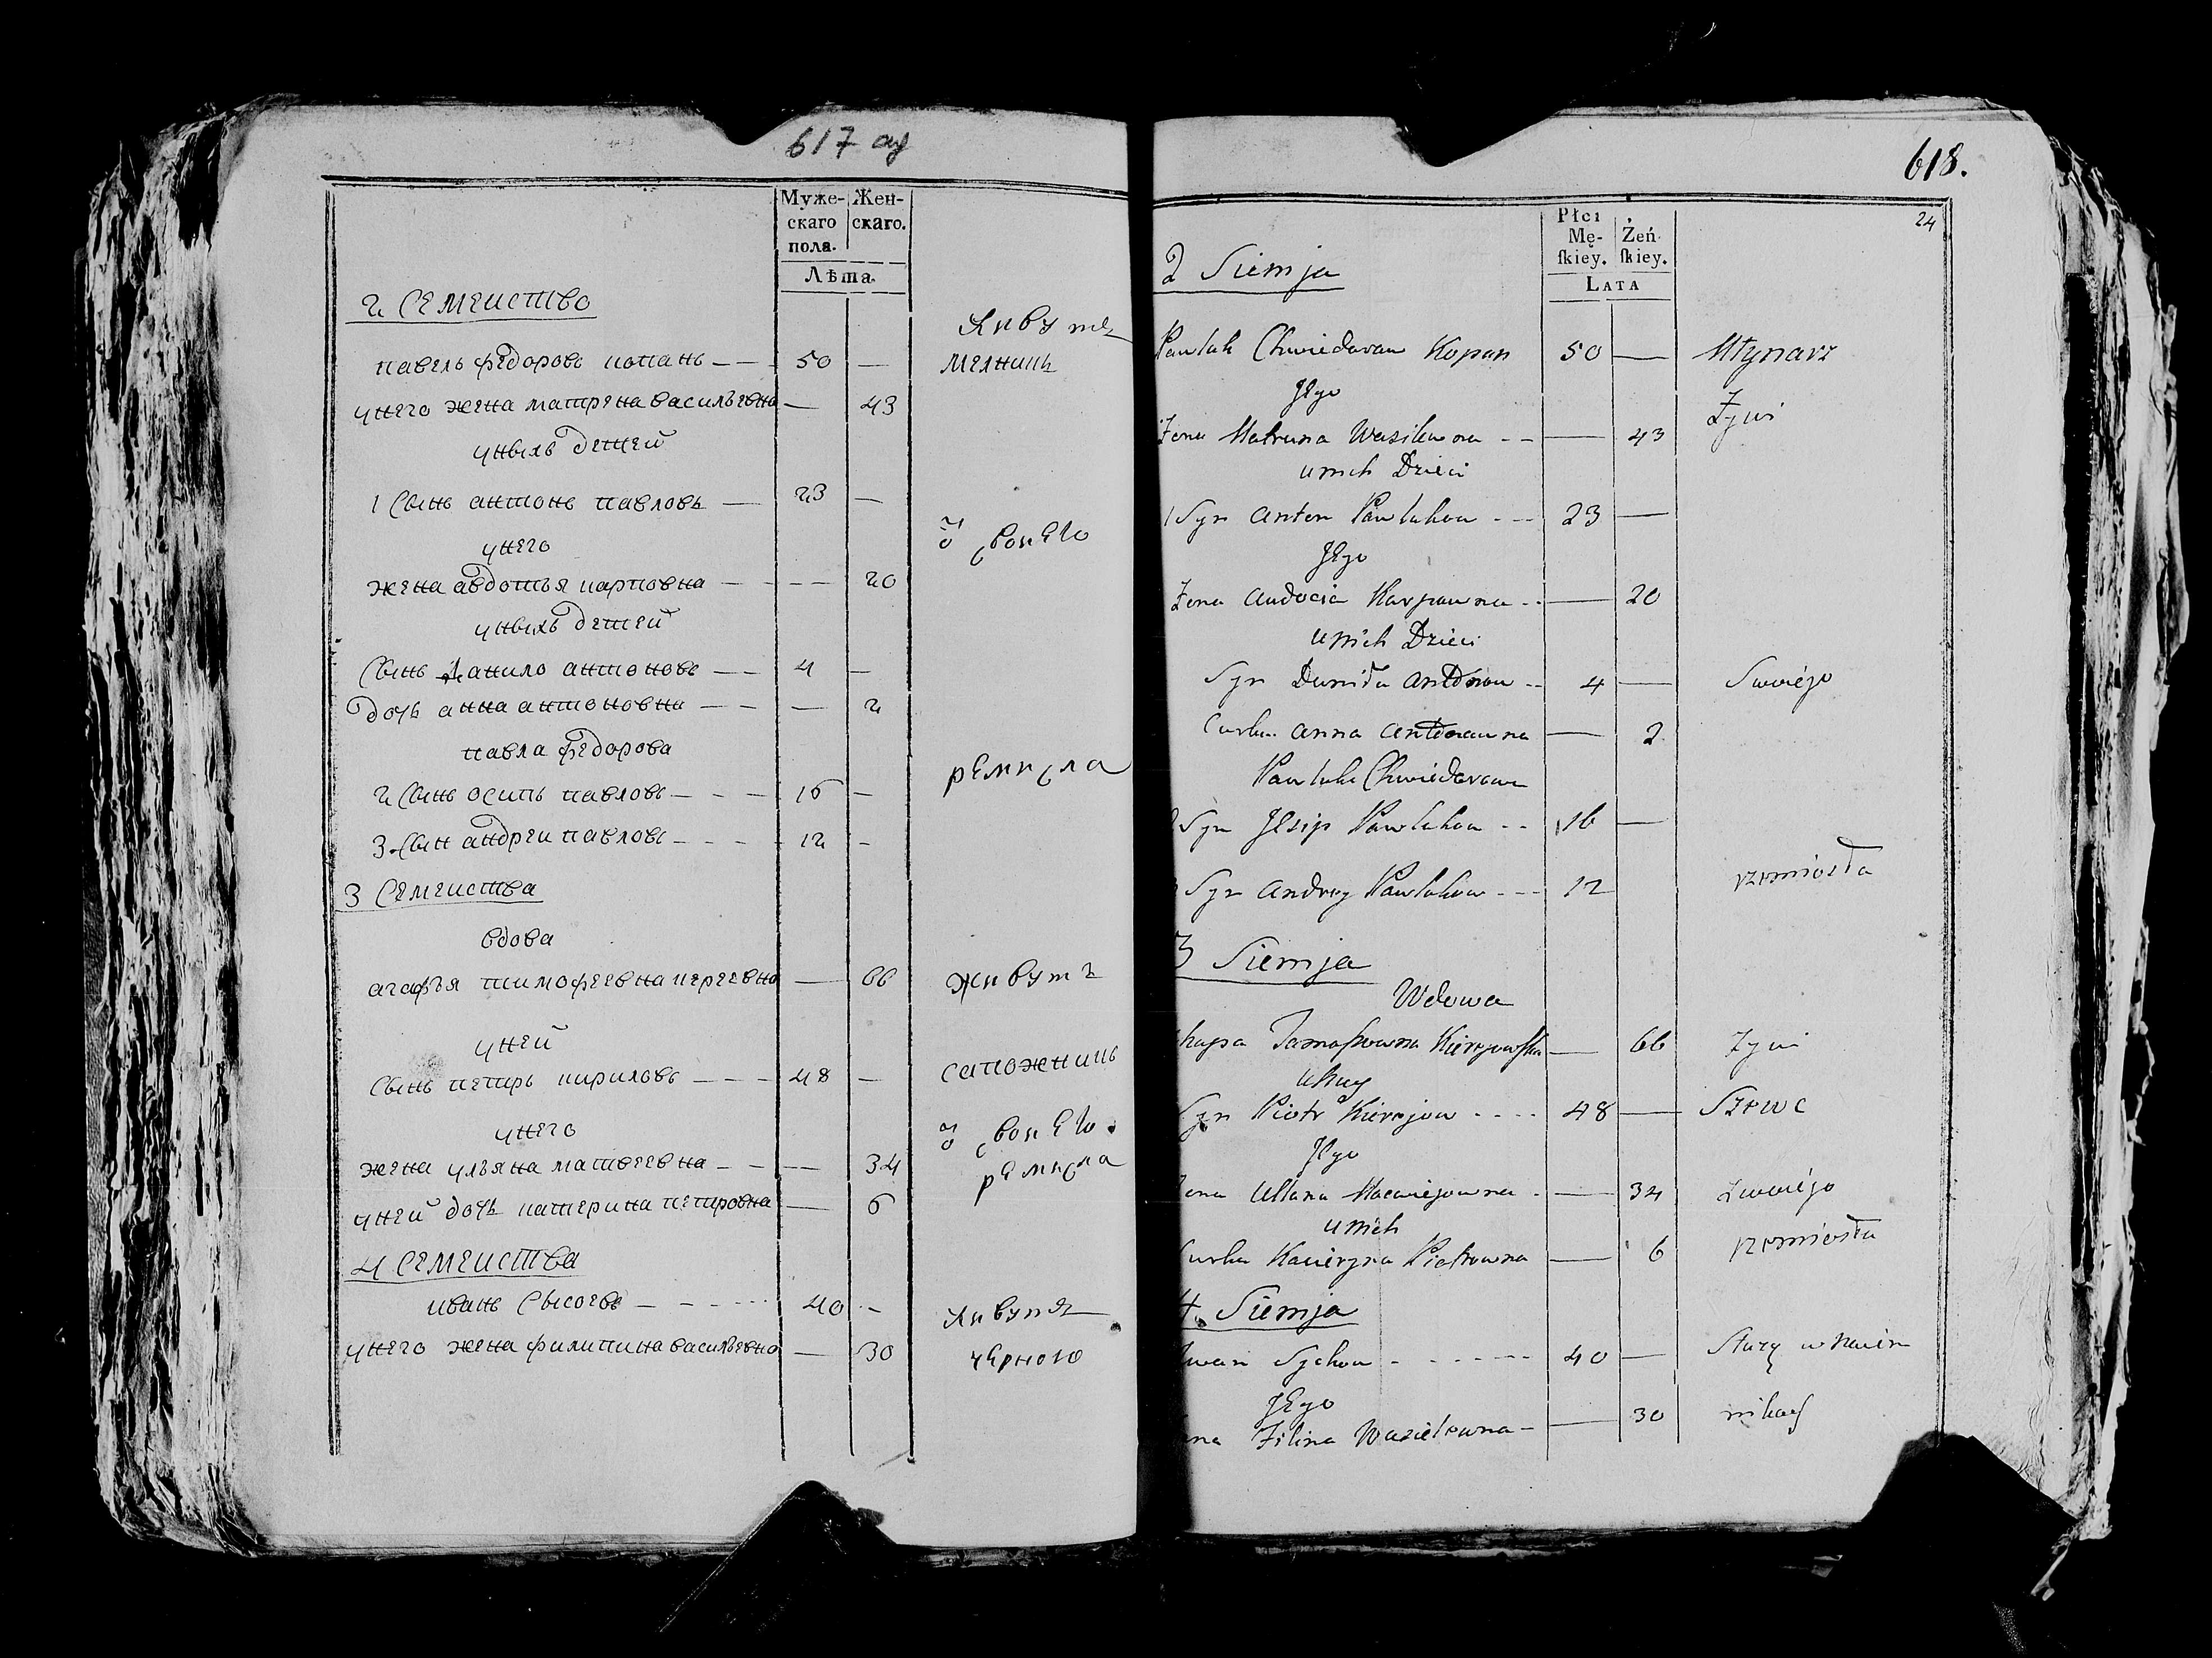 617 об
Муже-
скаго
пола.
Жен-
скаго.
Лѣта.
2 Семеиство
Живутъ
павелъ федоровъ копань — — 50 — мелникъ
унего жена матрена васильевна — 43
унихъ детей
1 Сынъ антонъ павловъ — 23 —
унего
своиего
жена авдотья карповна — — — 20
унихъ детей
Сынъ Данило антоновъ — — 4 —
дочь анна антоновна — — — 2
павла федорова
ремисла
2 Сынъ осипъ павловъ — — — 16 —
3 Сын андреи павловъ — — — 12 —
3 Семеиства
вдова
агафья тимофеевна киреевна — 66 живутъ
уней
сапожникъ
Сынъ петръ кириловъ — — — 48 —
унего
своиего
жена ульяна матвеевна — — — 34
ремисла
уней дочь катерина петровна — 6
4 Семеиства
иванъ Сысоевъ — — — 40 — живутъ
унего жена филипина васильевна — 30 черною
618.
24
Płci
Mę-
ſkiey.
Żeń-
ſkiey.
LATA
2 Siemja
Pawluk Chwiedarau Kopan 50 — Młynarz
Jego
Żona Matruna Wasilewna — — — 43 Żyui
unich Dzieci
1 Syn Anton Pawlukou — — 23 —
Jego
Żona Audocia Karpawna — — 20
unich Dzieci
Syn Daniła Antonou — — 4 — Swoiego
Curka Anna Antonauna — 2
Pawluka Chwiedarowa
Syn Jesip Pawlukou — — 16 —
Syn Andrey Pawlukow — — 12 rzemiosła
3 Siemja
Wdowa
Tamaszowna Kierejowska — 66 Żyui
Syn Piotr Kierejow — — 48 — Szewc
Jego
Ullana Maciejowna — — 34 Zwoiego
unich
Curka Kacieryna Pietrowna — 6 rzemiosła
4. Siemja
Iwan Sychou — — — 40 —
Jego
Filina Wasielewna — — 30